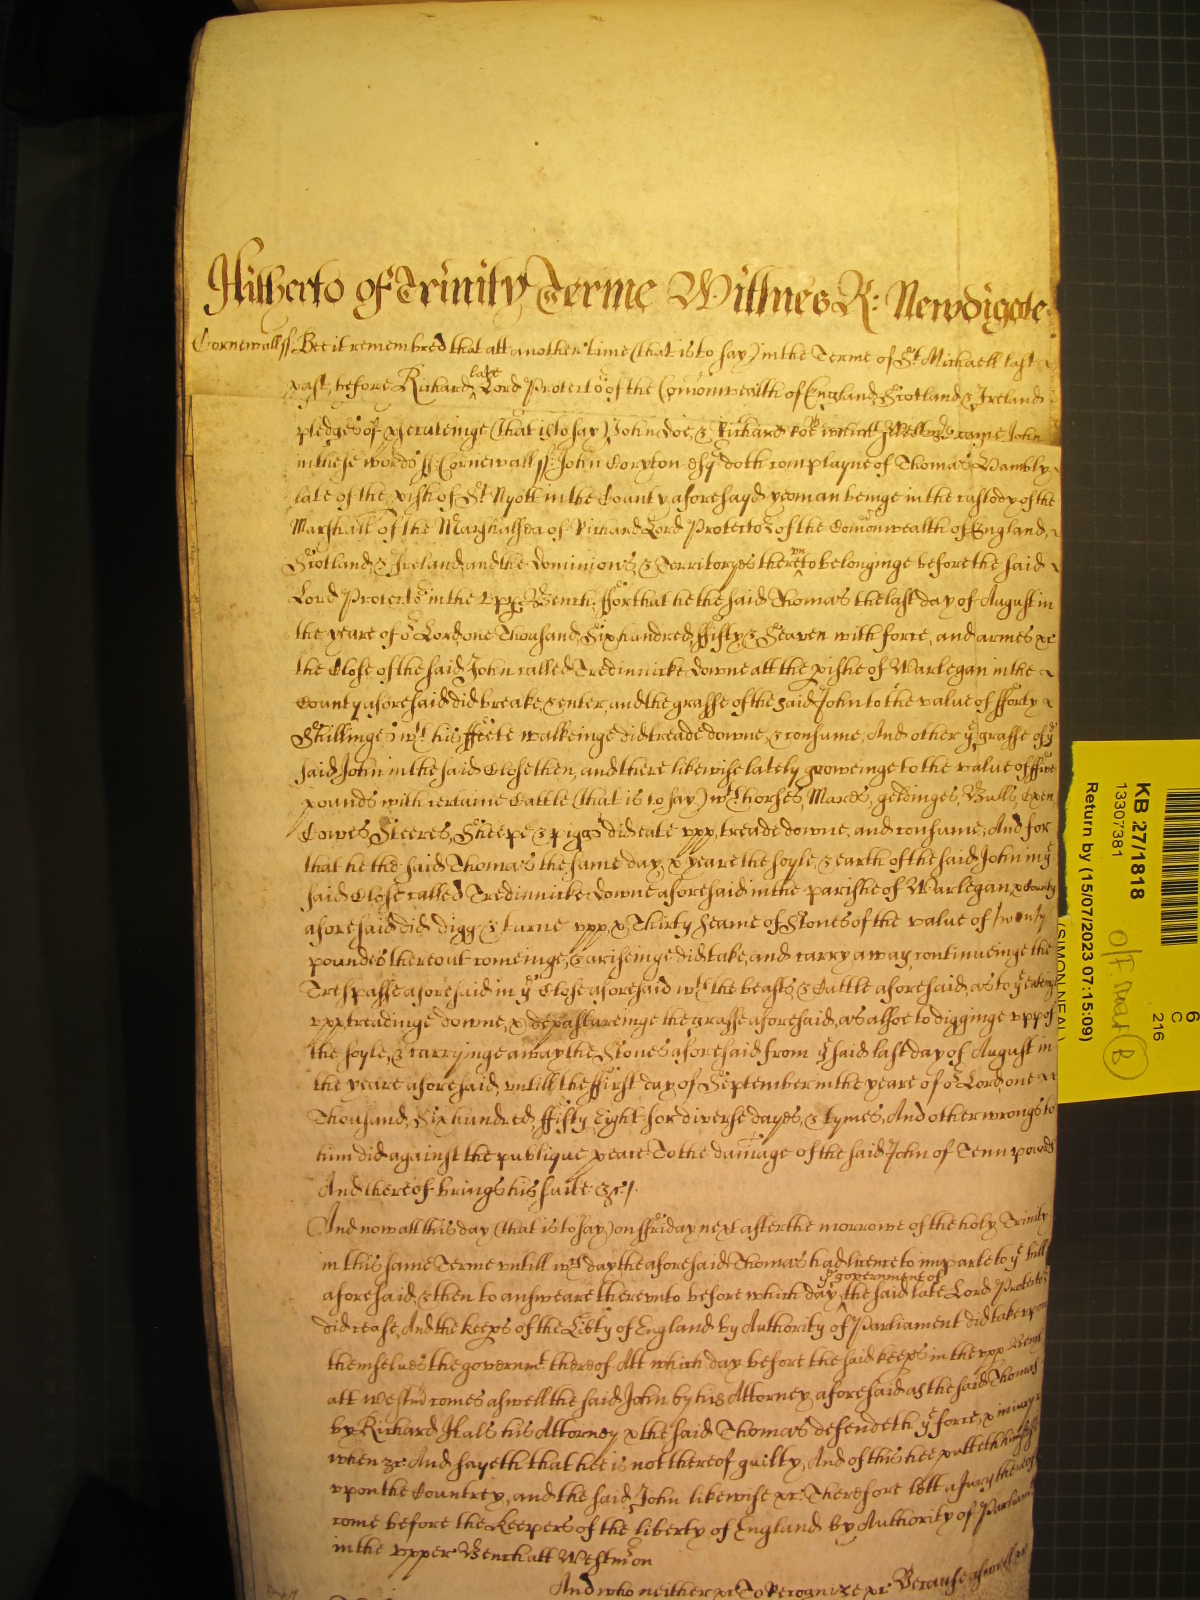 Hitherto of Trinity Terme Wittnes R: Newdigate
Cornewall ss Bee it remembred that att another time (that is to say) in the Terme of St Michaell last
past, before Richard late Lord Protector of the Comonwealth of England Scotland & Ireland
pledges of psecuteinge (that is to say) John Doe, & Richard Roe came John
in these words ss: Cornewall ss: John Coryton Esqr doth complayne of Thomas Hambly
late of the pish of St Nyott in the County aforesayd yeoman beinge in the custody of the
Marshall of the Marshalsea of Richard Lord Protector of the Comonwealth of England,
Scotland & Ireland, and the dominions & Territoryes therevnto belonginge before the said
Lord Protector in the Upp Bench. ffor that he the said Thomas the last day of August in
the yeare of or Lord one Thousand Six hundred ffifty & Seaven with force, and armes &c
the Close of the said John called Tredinnicke downe att the pishe of Warlegan in the
County aforesaid did breake, & enter, and the grasse of the said John to the value of fforty
Shillinges wth his ffeete walkeinge did treade downe, & consume, And other ye grasse of ye
said John in the said Close then, and there likewise lately groweinge to the value of ffive
pounds with certaine Cattle (that is to say) wth horses, Mares, geldinges, Bulls, Oxen
Cowes Steeres, Sheepe & piggs did eate vpp, treade downe, and consume, And for
that he the said Thomas the same day, & yeare the soyle, & earth of the said John in ye
said Close called Tredinnicke downe aforesaid in the parishe of Warlegan & County
aforesaid did digg & turne vpp, & Thirty seame of Stones of the value of twenty
poundes thereout comeinge, & ariseinge did take, and carry away, continueinge the
Trespasse aforesaid in ye Close aforesaid wth the beasts, & Cattle aforesaid, as to ye eateinge
vpp, treadinge downe, & depastureinge the grasse aforesaid, as alsoe to digginge vpp of
the soyle, & carryinge away the Stones aforesaid from ye said last day of August in
the yeare aforesaid, vntill the ffirst day of September in the yeare of or Lord one
Thousand, Six hundred, ffifty Eight for diverse dayes, & tymes, And other wrongs to
him did against the publique peace To the damage of the said John of Tenn pounds
And thereof brings his suite &c/.
And now att this day (that is to say) on ffriday next after the morrowe of the holy Trinity
in this same Terme vntill wch day the aforesaid Thomas had licence to imparle to ye bill
aforesaid, & then to answeare therevnto before which day ye government of the said late Lord Protector
did cease, And the keeps of the Liberty of England by Authority of Parliament did take vpon
themselves the governmt thereof Att which day before the said keeps in the vpp Bench
att Westm comes aswell the said John by his Attorney aforesaid as the said Thomas
by Richard Hals his Attorney & the said Thomas defendeth ye force, & iniury
when &c And sayeth that hee is not thereof guilty, And of this hee putteth himselfe
vpon the Countrey, and the said John likewise &c. Therefore lett a Jury thereof
come before the Keepers of the liberty of England by Authority of Parliamt
in the vpper Bench att Westm on
And who neither &c To Recognize &c Because aswell &c
KB 27/1818
13307381
Return by (15/07/2023 07:15:09)
(SIMON NEAL)
6
C
216
B